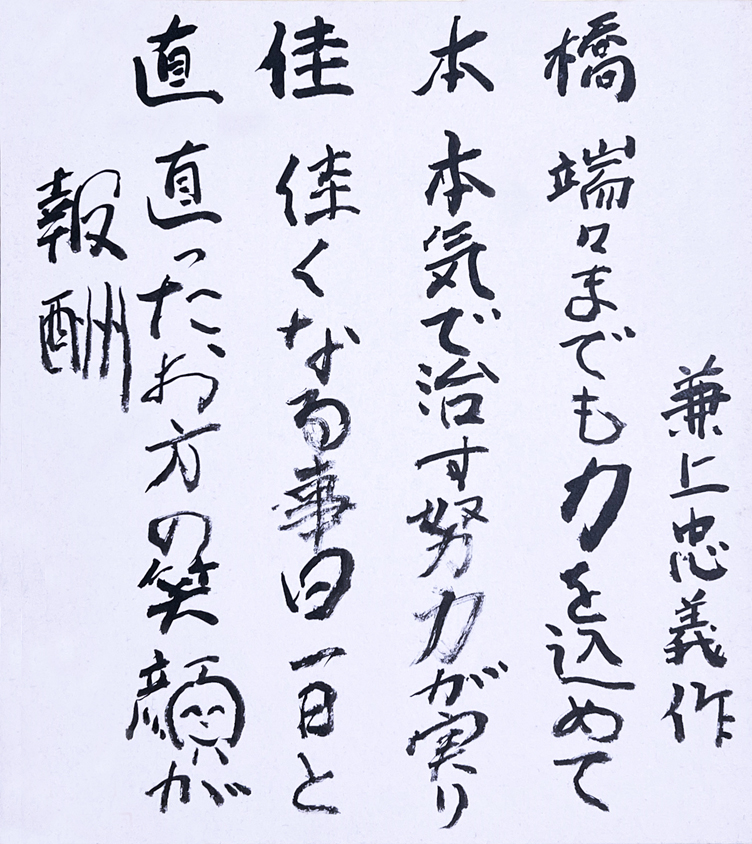 兼上忠義作
橋 端々までも力を込めて
本 本気で治す努力が実り
佳 佳くなる事日一日と
直 直ったお方の笑顔が
報酬